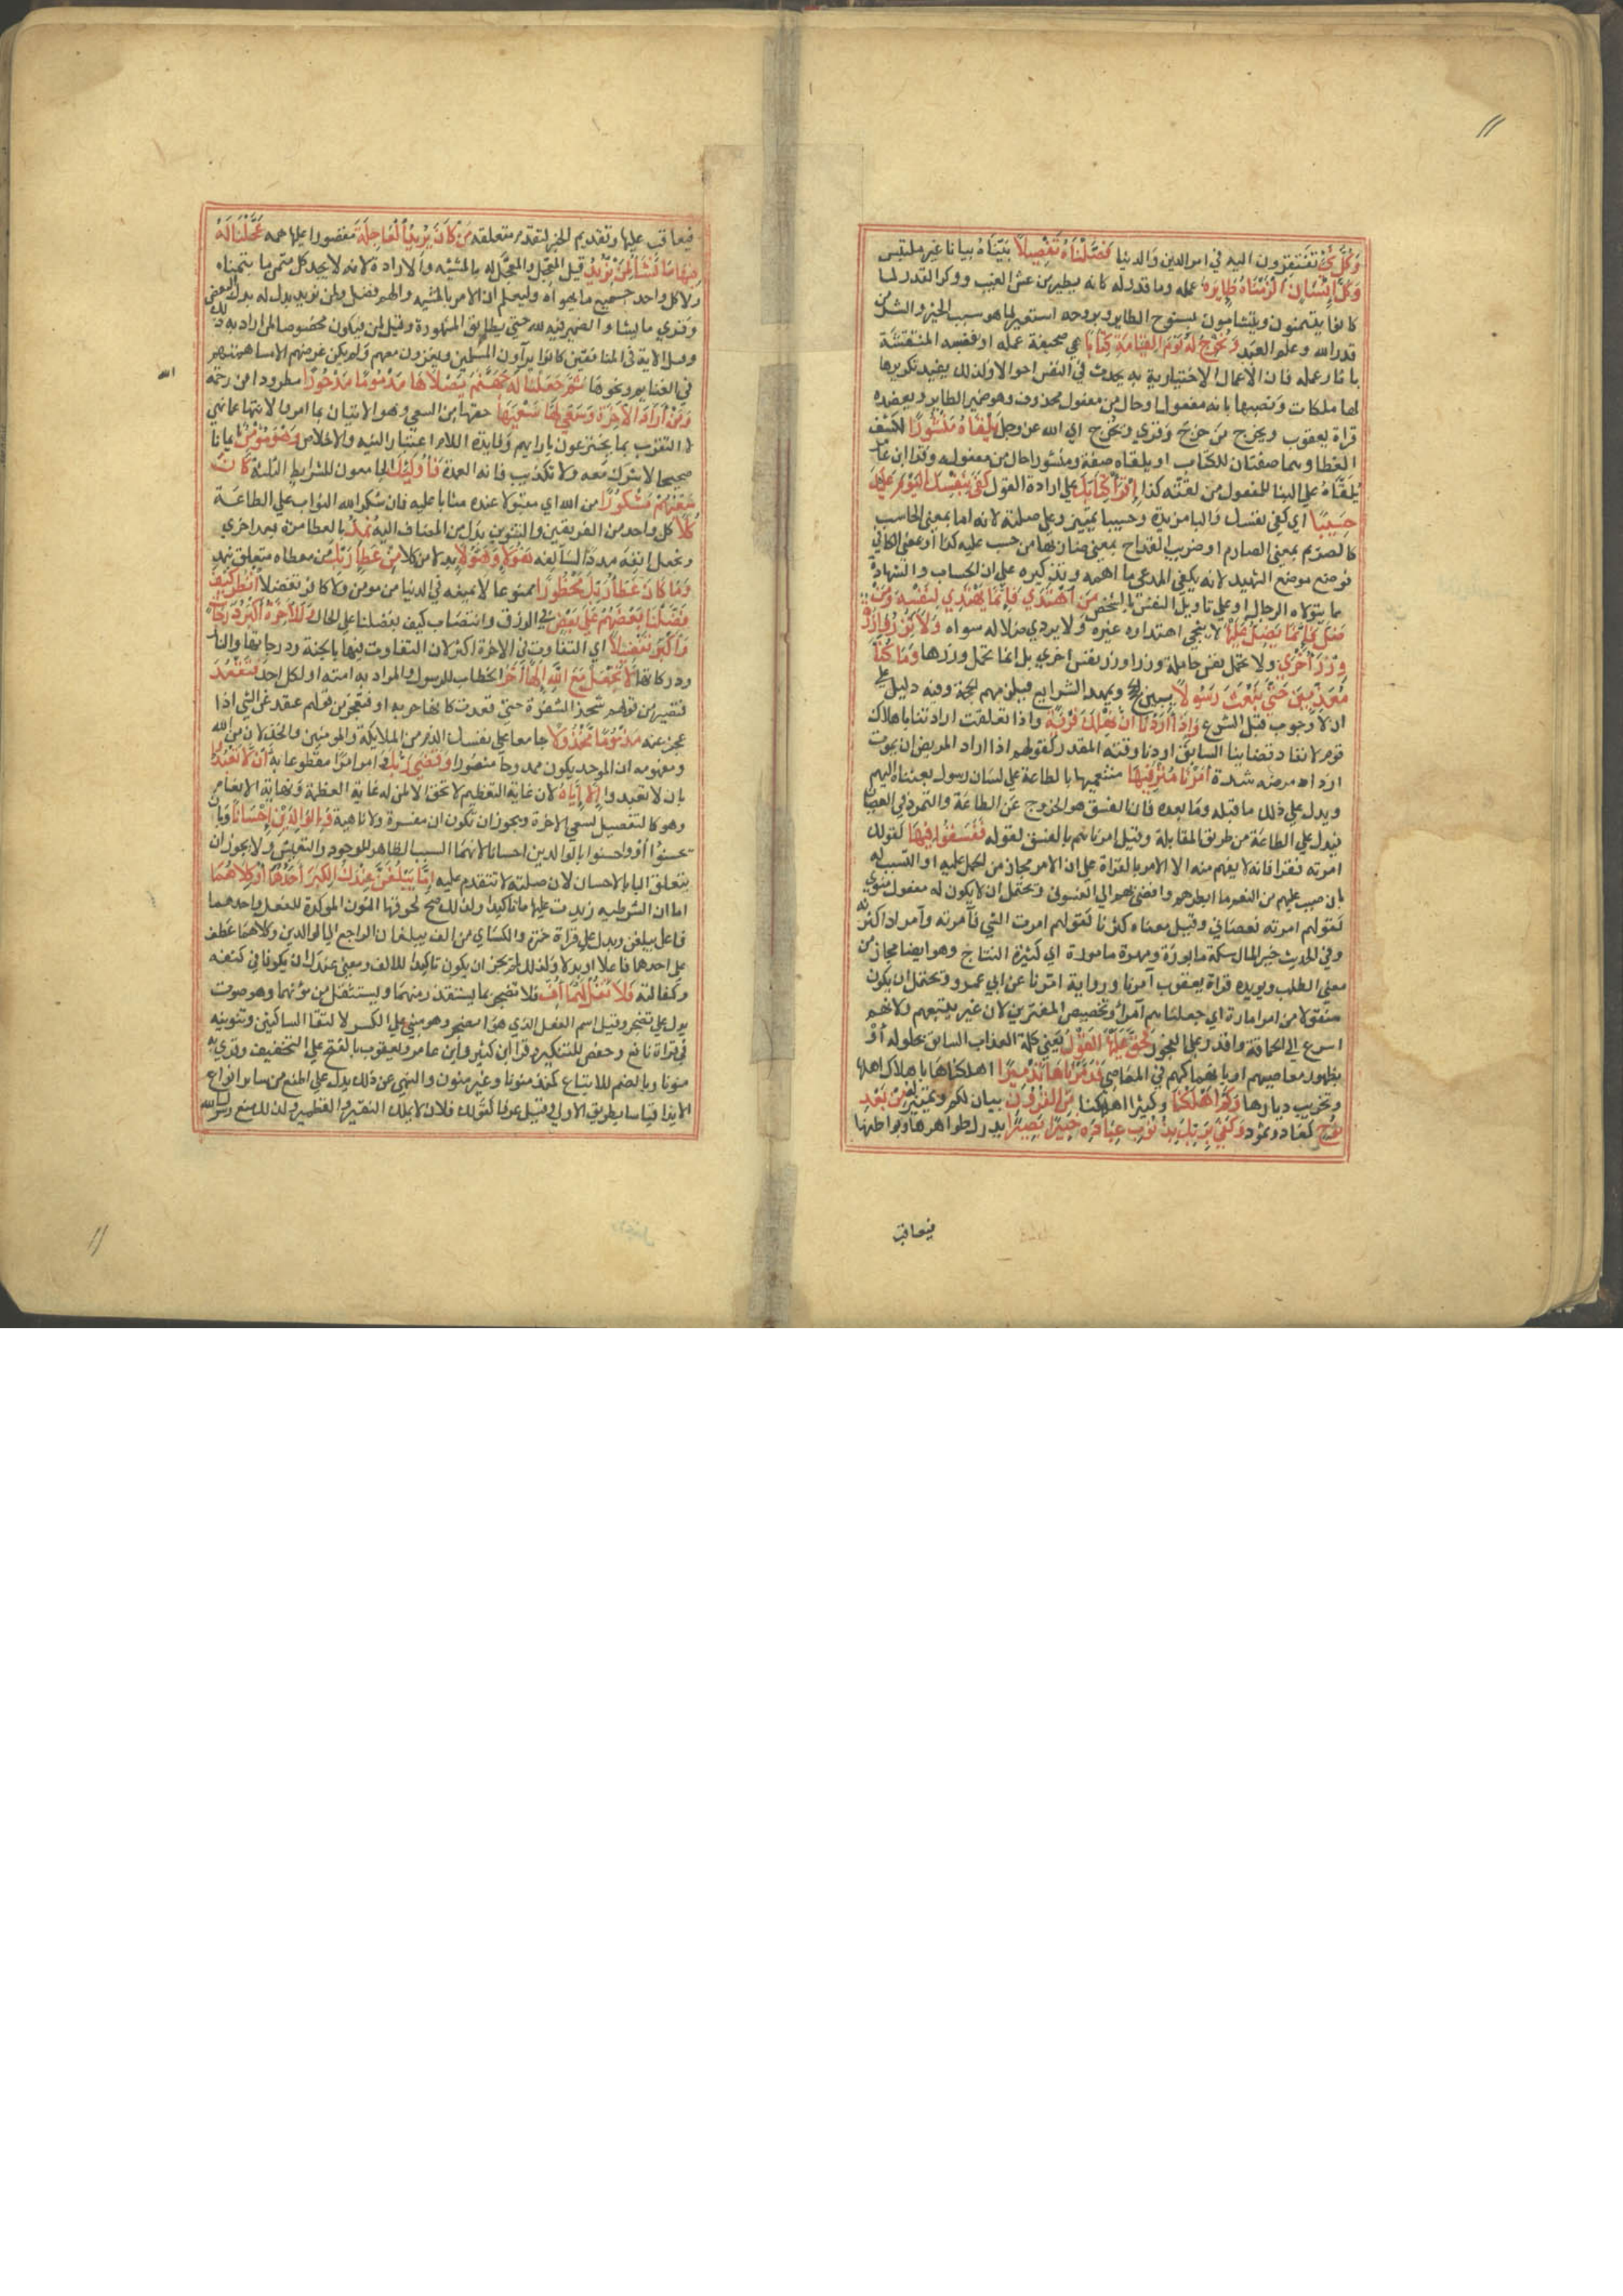 ١١
وَكُلَّ شَيْءٍ تفتقرون اليه في امر الدين والدنيا فَصَّلْنَاهُ تَفْصِيلًا بيناه بيانا غير ملتبس
وَكُلَّ اِنْسَانٍ اَلْزَمْنَاهُ طَايِرَهُ عمله وما قدر له كانه يطير من عش الغيب ووكر القدر لما
كانوا يتيمنون ويتشامون بسنوح الطاير وبروحه استعير لما هو سبب الخير والشر من
قدر الله وعلم العبد وَنُخْرِجُ لَهُ يَوْمَ الْقِيَامَةِ كِتَابًا هي صحيفة عمله او نفسه المنتقشة
باثار عمله فان الاعمال الاختيارية يحدث في النفس احوالا ولذلك يفيد تكريرها
لها ملكات ونصبها بانه مفعول او حال من مفعول محذوف وهو ضمير الطاير ويعضده
قراة يعقوب ويخرج من خرج وقري ويخرج اي الله عز وجل يَلْقَاهُ مَنْشُورًا لكشف
الغطا وهما صفتان للكتاب او يلقاه صفة ومنشورا حال من مفعوله وقرا ابن عامر
يُلَقَّاهُ على البنا للمفعول من لقيته كذا اِقْرَأْ كِتَابَكَ على ارادة القول كَفَى بِنَفْسِكَ الْيَوْمَ عَلَيْكَ
حَسِيبًا اي كفى نفسك والبا مزيدة وحسيبا تمييز وعلى صلته لانه اما بمعنى الحاسب
كالصريم بمعنى الصارم او ضريب القداح بمعنى ضاربها من حسب عليه كذا او بمعنى الكافي
فوضع موضع الشهيد لانه يكفي المدعي ما اهمه وتذكيره على ان الحساب والشهادة
مما يتولاه الرجال او على تاويل النفس بالشخص مَنِ اهْتَدَى فَاِنَّمَا يَهْتَدِي لِنَفْسِهِ وَمَنْ
ضَلَّ فَاِنَّمَا يَضِلُّ عَلَيْهَا لا ينجي اهتداوه غيره ولا يردي ضلاله سواه وَلَا تَزِرُ وَازِرَةٌ
وِزْرَ اُخْرَى ولا تحمل نفس حاملة وزرا وزر نفس اخرى بل انما تحمل وزرها وَمَا كُنَّا
مُعَذِّبِينَ حَتَّى نَبْعَثَ رَسُولًا يبين الحجج ويمهد الشرايع فيلزمهم الحجة وفيه دليل على
ان لا وجوب قبل الشرع وَاِذَا اَرَدْنَا اَنْ نُهْلِكَ قَرْيَةً واذا تعلقت ارادتنا باهلاك
قوم لانفاد قضاينا السابق او دنا وقته المقدر كقولهم اذا اراد المريض ان يموت
ازداد مرضه شدة اَمَرْنَا مُتْرَفِيهَا متنعميها بالطاعة على لسان رسول بعثناه اليهم
ويدل على ذلك ما قبله وما بعده فان الفسق هو الخروج عن الطاعة والتمرد في العصيان
فيدل على الطاعة من طريق المقابلة وقيل امرناهم بالفسق لقوله فَفَسَقُوا فِيهَا كقولك
امرته فقرا فانه لا يفهم منه الا الامر بالقراة على ان الامر مجاز من الحمل عليه او التسبب له
بان صب عليهم من النعم ما ابطرهم وافضى بهم الى الفسوق ويحتمل ان لا يكون له مفعول منوي
كقولهم امرته فعصاني وقيل معناه كثرنا كقولهم امرت الشي فامرته وآمر اذا كثرته
وفي الحديث خير المال سكة مابورة ومهرة مامورة اي كثيرة النتاج وهو ايضا مجاز من
معنى الطلب ويويده قراة يعقوب آمرنا ورواية امرنا عن ابي عمرو ويحتمل ان يكون
منقولا من امر امارة اي جعلناهم امرا وتخصيص المترفين لان غيرهم يتبعهم ولانهم
اسرع الى الحماقة واقدر على الفجور فَحَقَّ عَلَيْهَا الْقَوْلُ يعني كلمة العذاب السابق بحلوله او
بظهور معاصيهم او بانهماكهم في المعاصي فَدَمَّرْنَاهَا تَدْمِيرًا اهلكناها باهلاك اهلها
وتخريب ديارها وَكَمْ اَهْلَكْنَا وكثيرا اهلكنا مِنَ الْقُرُونِ بيان لكم وتمييز له مِنْ بَعْدِ
نُوحٍ كعاد وثمود وَكَفَى بِرَبِّكَ بِذُنُوبِ عِبَادِهِ خَبِيرًا بَصِيرًا يدرك ظواهرها وبواطنها
فيعاقب
فيعاقب عليها وتقديم الخبير لتقدم متعلقه مَنْ كَانَ يُرِيدُ الْعَاجِلَةَ مقصورا عليها همه عَجَّلْنَا لَهُ
فِيهَا مَا نَشَاءُ لِمَنْ نُرِيدُ قيل المعجل والمعجل له بالمشية والارادة لانه لا يجد كل متمن ما يتمناه
ولا كل واحد جميع ما يهواه وليعلم ان الامر بالمشية والهم فضل ولمن نريد بدل له بدل البعض
وقري ما يشا والضمير فيه لله حتى يطابق المشهورة وقيل لمن فيكون مخصوصا لمن اراد به ذلك
وقيل الاية في المنافقين كانوا يرآون المسلمين ويغزون معهم ولم يكن غرضهم الا مساهمتهم
في الغنايم ونحوها ثُمَّ جَعَلْنَا لَهُ جَهَنَّمَ يَصْلَاهَا مَذْمُومًا مَدْحُورًا مطرودا من رحمة
الله
وَمَنْ اَرَادَ الْاٰخِرَةَ وَسَعَى لَهَا سَعْيَهَا حقها من السعي وهو الاتيان بما امر والانتها عما نهي
لا التقرب بما يخترعون بارايهم وفايدة اللام اعتبار النية والاخلاص وَهُوَ مُؤْمِنٌ ايمانا
صحيحا لا شرك معه ولا تكذيب فانه العمدة فَاُولٰئِكَ الجامعون للشرايط الثلثة كَانَ
سَعْيُهُمْ مَشْكُورًا من الله اي مقبولا عنده مثابا عليه فان شكر الله الثواب على الطاعة
كُلًّا كل واحد من الفريقين والتنوين بدل من المضاف اليه نُمِدُّ بالعطا مرة بعد اخرى
ونجعل انفه مددا لسالفه هٰؤُلَاءِ وَهٰؤُلَاءِ بدلا من كلا مِنْ عَطَاءِ رَبِّكَ من معطاه متعلق بنمد
وَمَا كَانَ عَطَاءُ رَبِّكَ مَحْظُورًا ممنوعا لا يمنعه في الدنيا من مومن ولا كافر تفضلا اُنْظُرْ كَيْفَ
فَضَّلْنَا بَعْضَهُمْ عَلَى بَعْضٍ في الرزق وانتصاب كيف بفضلنا على الحال وَلَلْاٰخِرَةُ اَكْبَرُ دَرَجَاتٍ
وَاَكْبَرُ تَفْضِيلًا اي التفاوت في الاخرة اكثر لان التفاوت فيها بالجنة ودرجاتها والنار
ودركاتها لَا تَجْعَلْ مَعَ اللهِ اِلٰهًا اٰخَرَ الخطاب للرسول والمراد به امته او لكل احد فَتَقْعُدَ
فتصير من قولهم شحذ الشفرة حتى قعدت كانها حربة او فتعجز من قولهم قعد عن الشي اذا
عجز عنه مَذْمُومًا مَخْذُولًا جامعا على نفسك الذم من الملايكة والمومنين والخذلان من الله
ومفهومه ان الموحد يكون ممدوحا منصورا وَقَضَى رَبُّكَ وامر امرا مقطوعا به اَنْ لَا تَعْبُدُوا
بان لا تعبدوا اِلَّا اِيَّاهُ لان غاية التعظيم لا تحق الا لمن له غاية العظمة ونهاية الانعام
وهو كالتفصيل لسعي الاخرة ويجوز ان تكون ان مفسرة ولا ناهية وَبِالْوَالِدَيْنِ اِحْسَانًا وبان
تحسنوا او واحسنوا بالوالدين احسانا لانهما السبب الظاهر للوجود والتعيش ولا يجوز ان
يتعلق البا بالاحسان لان صلته لا تتقدم عليه اِمَّا يَبْلُغَنَّ عِنْدَكَ الْكِبَرَ اَحَدُهُمَا اَوْ كِلَاهُمَا
اما ان الشرطية زيدت عليها ما تاكيدا ولذلك صح لحوقها النون الموكدة للفعل واحدهما
فاعل يبلغن وبدل على قراة حمزة والكساي من الف يبلغان الراجع الى الوالدين وكلاهما عطف
على احدهما فاعلا او بدلا ولذلك لم يجز ان يكون تاكيدا للالف ومعنى عندك ان يكونا في كنفه
وكفالته فَلَا تَقُلْ لَهُمَا اُفٍّ فلا تضجر بما يستقذر منهما ويستثقل من مؤنهما وهو صوت
يدل على تضجر وقيل اسم الفعل الذي هو اتضجر وهو مبني على الكسر لالتقا الساكنين وتنوينه
في قراة نافع وحفص للتنكير وقرا ابن كثير وابن عامر ويعقوب بالفتح على التخفيف وقري به
منونا وبالضم للاتباع كمنذ منونا وغير منون والنهي عن ذلك يدل على المنع من ساير انواع
الايذا قياسا بطريق الاولى وقيل عرفا كقولك فلان لا يملك النقير والقطمير ولذلك منع رسول الله
١١